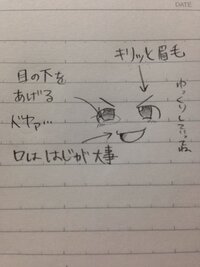 DATE
キリッと眉毛
目の下を
あげる
ベヤァ…
口ははじが大事
ゆっくりしてってね